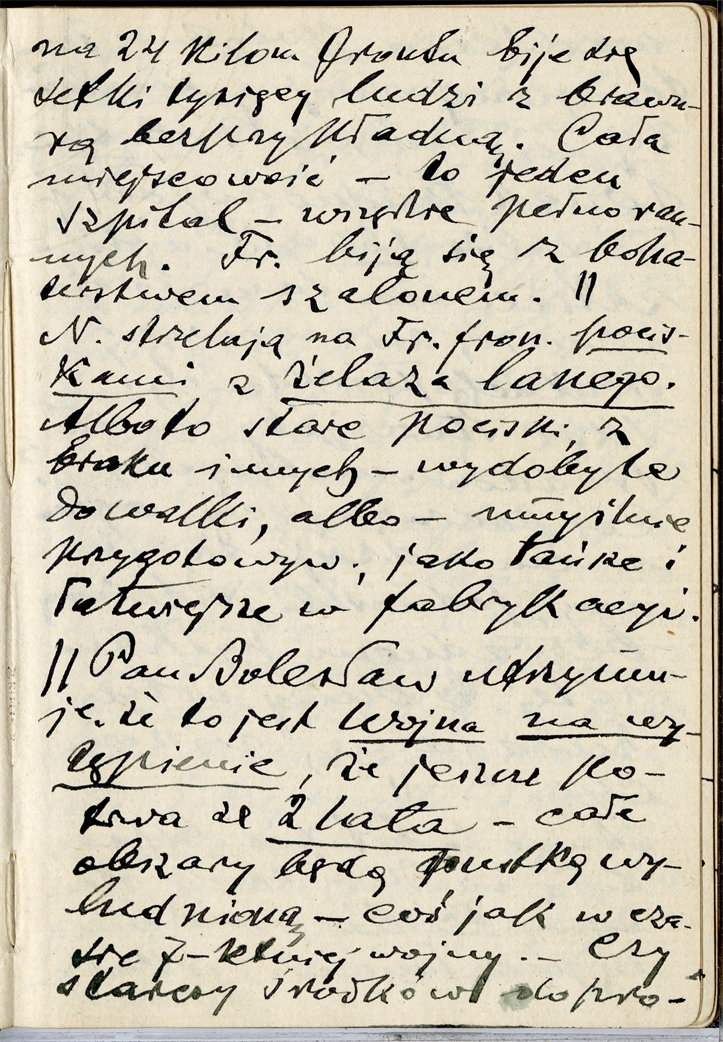 na 24 kilom frontu bije się
setki tysięcy ludzi z brawu-
rą bezprzykładną. Cała
miejscowość – to jeden
szpital – wszędzie pełno ran-
nych. Fr. biją się z boha-
terstwem szalonem. ||
N. strzelają na Fr. fron. pocis-
kami z żelaza lanego.
Albo to stare pociski, z
braku innych – wydobyte
do walki, albo – umyślnie
przygotowyw., jako tańsze i
łatwiejsze w fabrykacyi.
|| Pan Bolesław utrzymu-
je, że to jest wojna na wy-
tępienie, że jeszcze po-
trwa ze 2 lata – całe
obszary będą pustką wy-
ludnioną – coś jak w cza-
sie 7-letniej wojny. – Czy
starczy środków do pro-